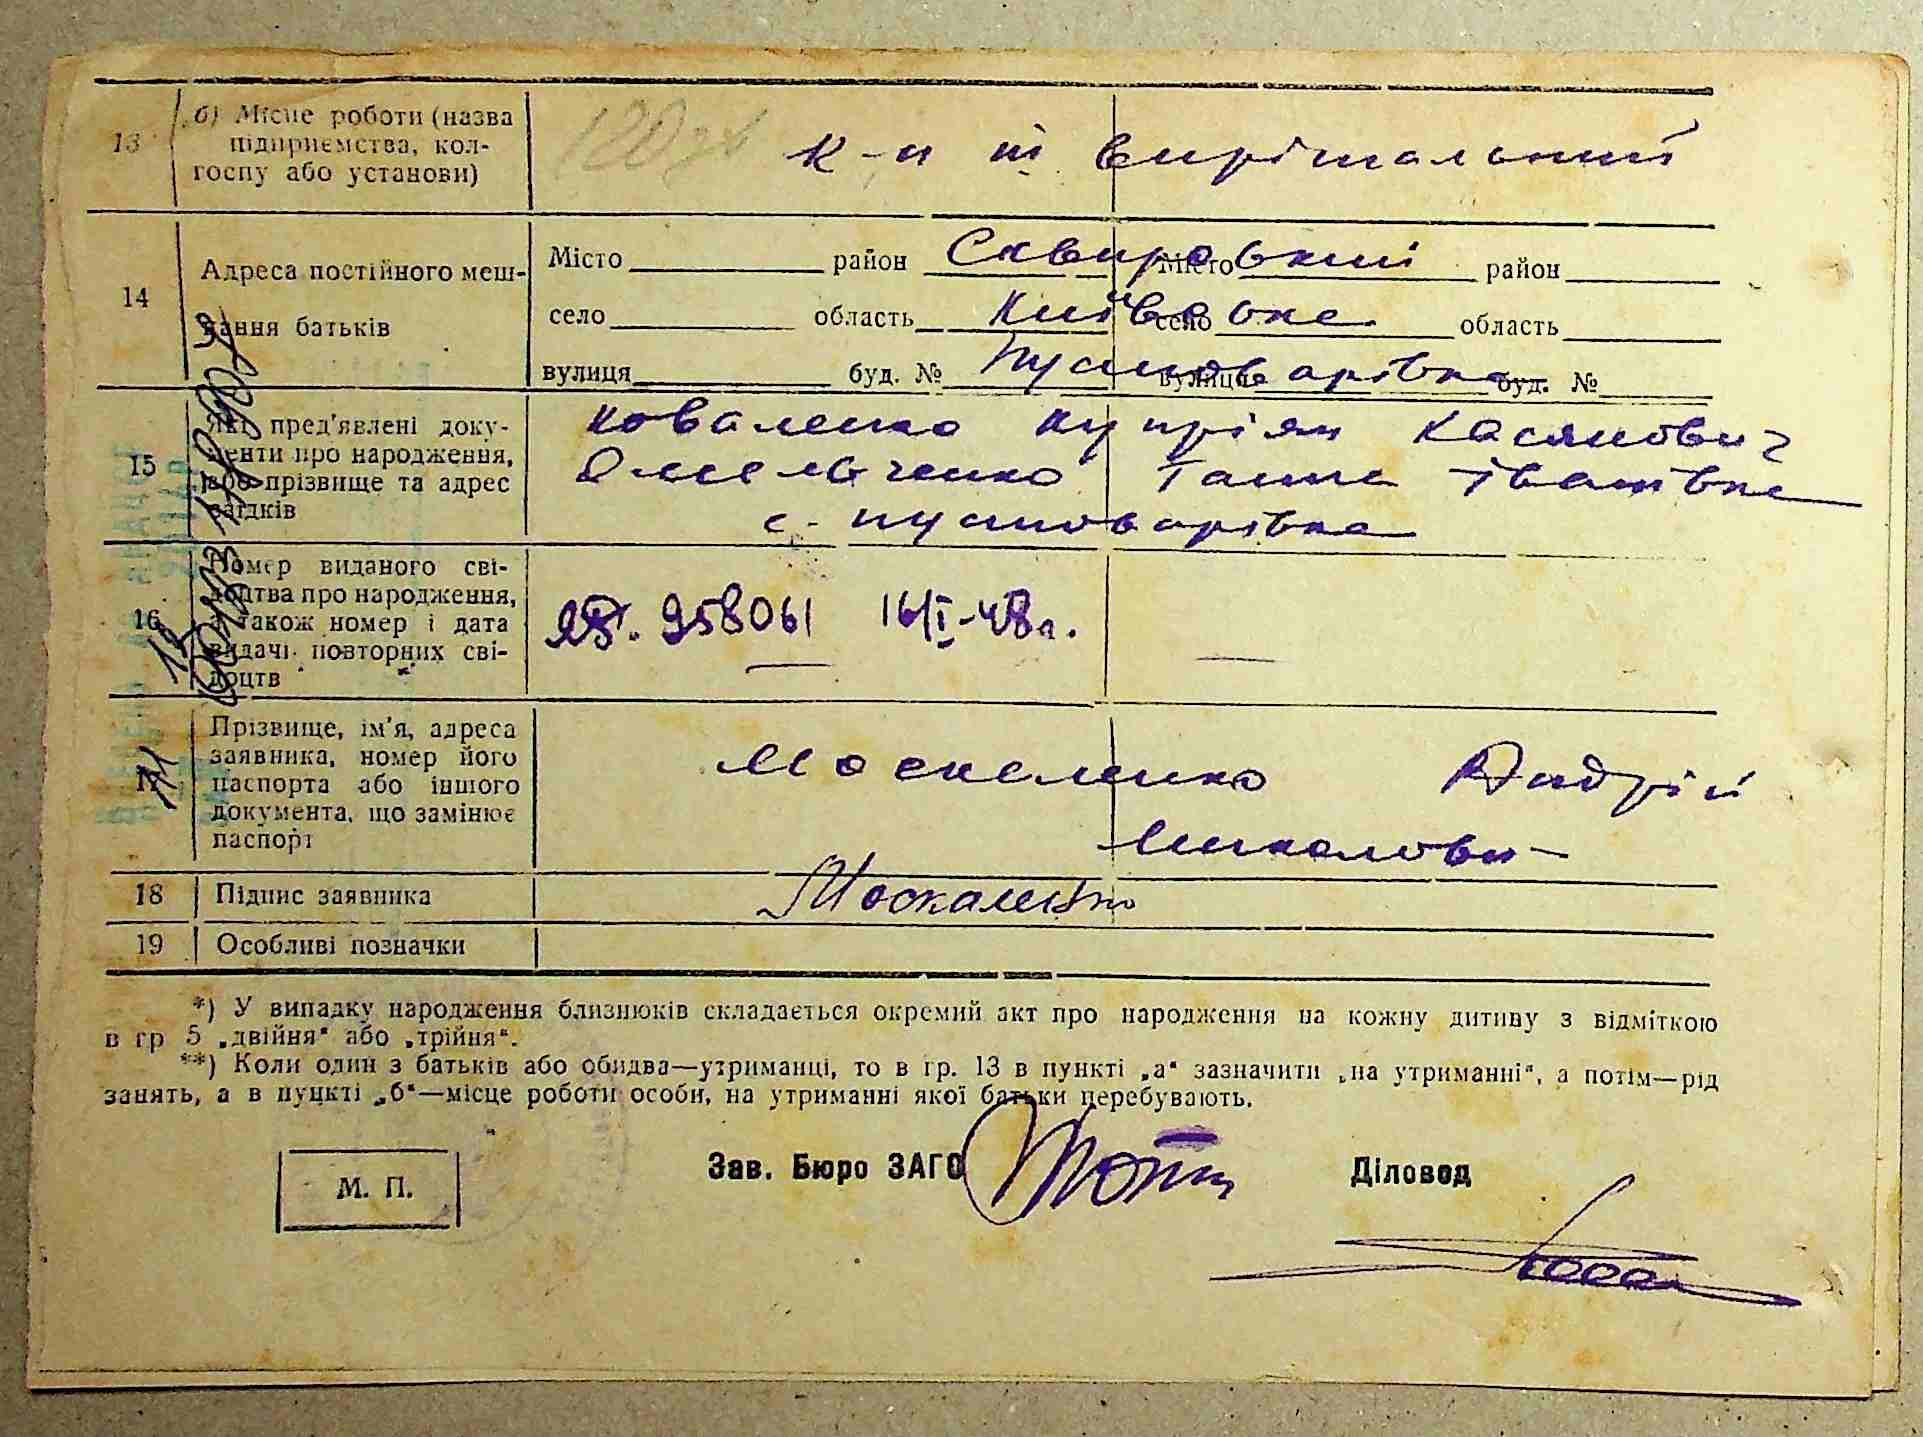 13 б) Місце роботи (назва
підприємства, кол-
госпу або установи)
к-п ІІІ вирішальний
14 Адреса постійного меш-
кання батьків
Місто район Сквирський Місто район
село область Київська село область
вулиця буд. № Пустоварівка вулиця буд. №
15 Які пред'явлені доку-
менти про народження,
або прізвище та адрес
свідків
Коваленко Купріян Касянович
Омельченко Ганна Іванівна
с. Пустоварівка
16 Номер виданого сві-
доцтва про народження,
а також номер і дата
видачі повторних сві-
доцтв
958061 16/І-48р.
17 Прізвище, ім'я, адреса
заявника, номер його
паспорта або іншого
документа, що замінює
паспорт
Москаленко Андрій
Миколови
18 Підпис заявника Москаленко
19 Особливі позначки
*) У випадку народження близнюків складається окремий акт про народження на кожну дитину з відміткою
в гр 5 „двійня" або „трійня".
**) Коли один з батьків або обидва—утриманці, то в гр. 13 в пункті „а" зазначити „на утриманні", а потім—рід
занять, а в пункті „б"—місце роботи особи, на утриманні якої батьки перебувають.
М. П. Зав. Бюро ЗАГС Діловод